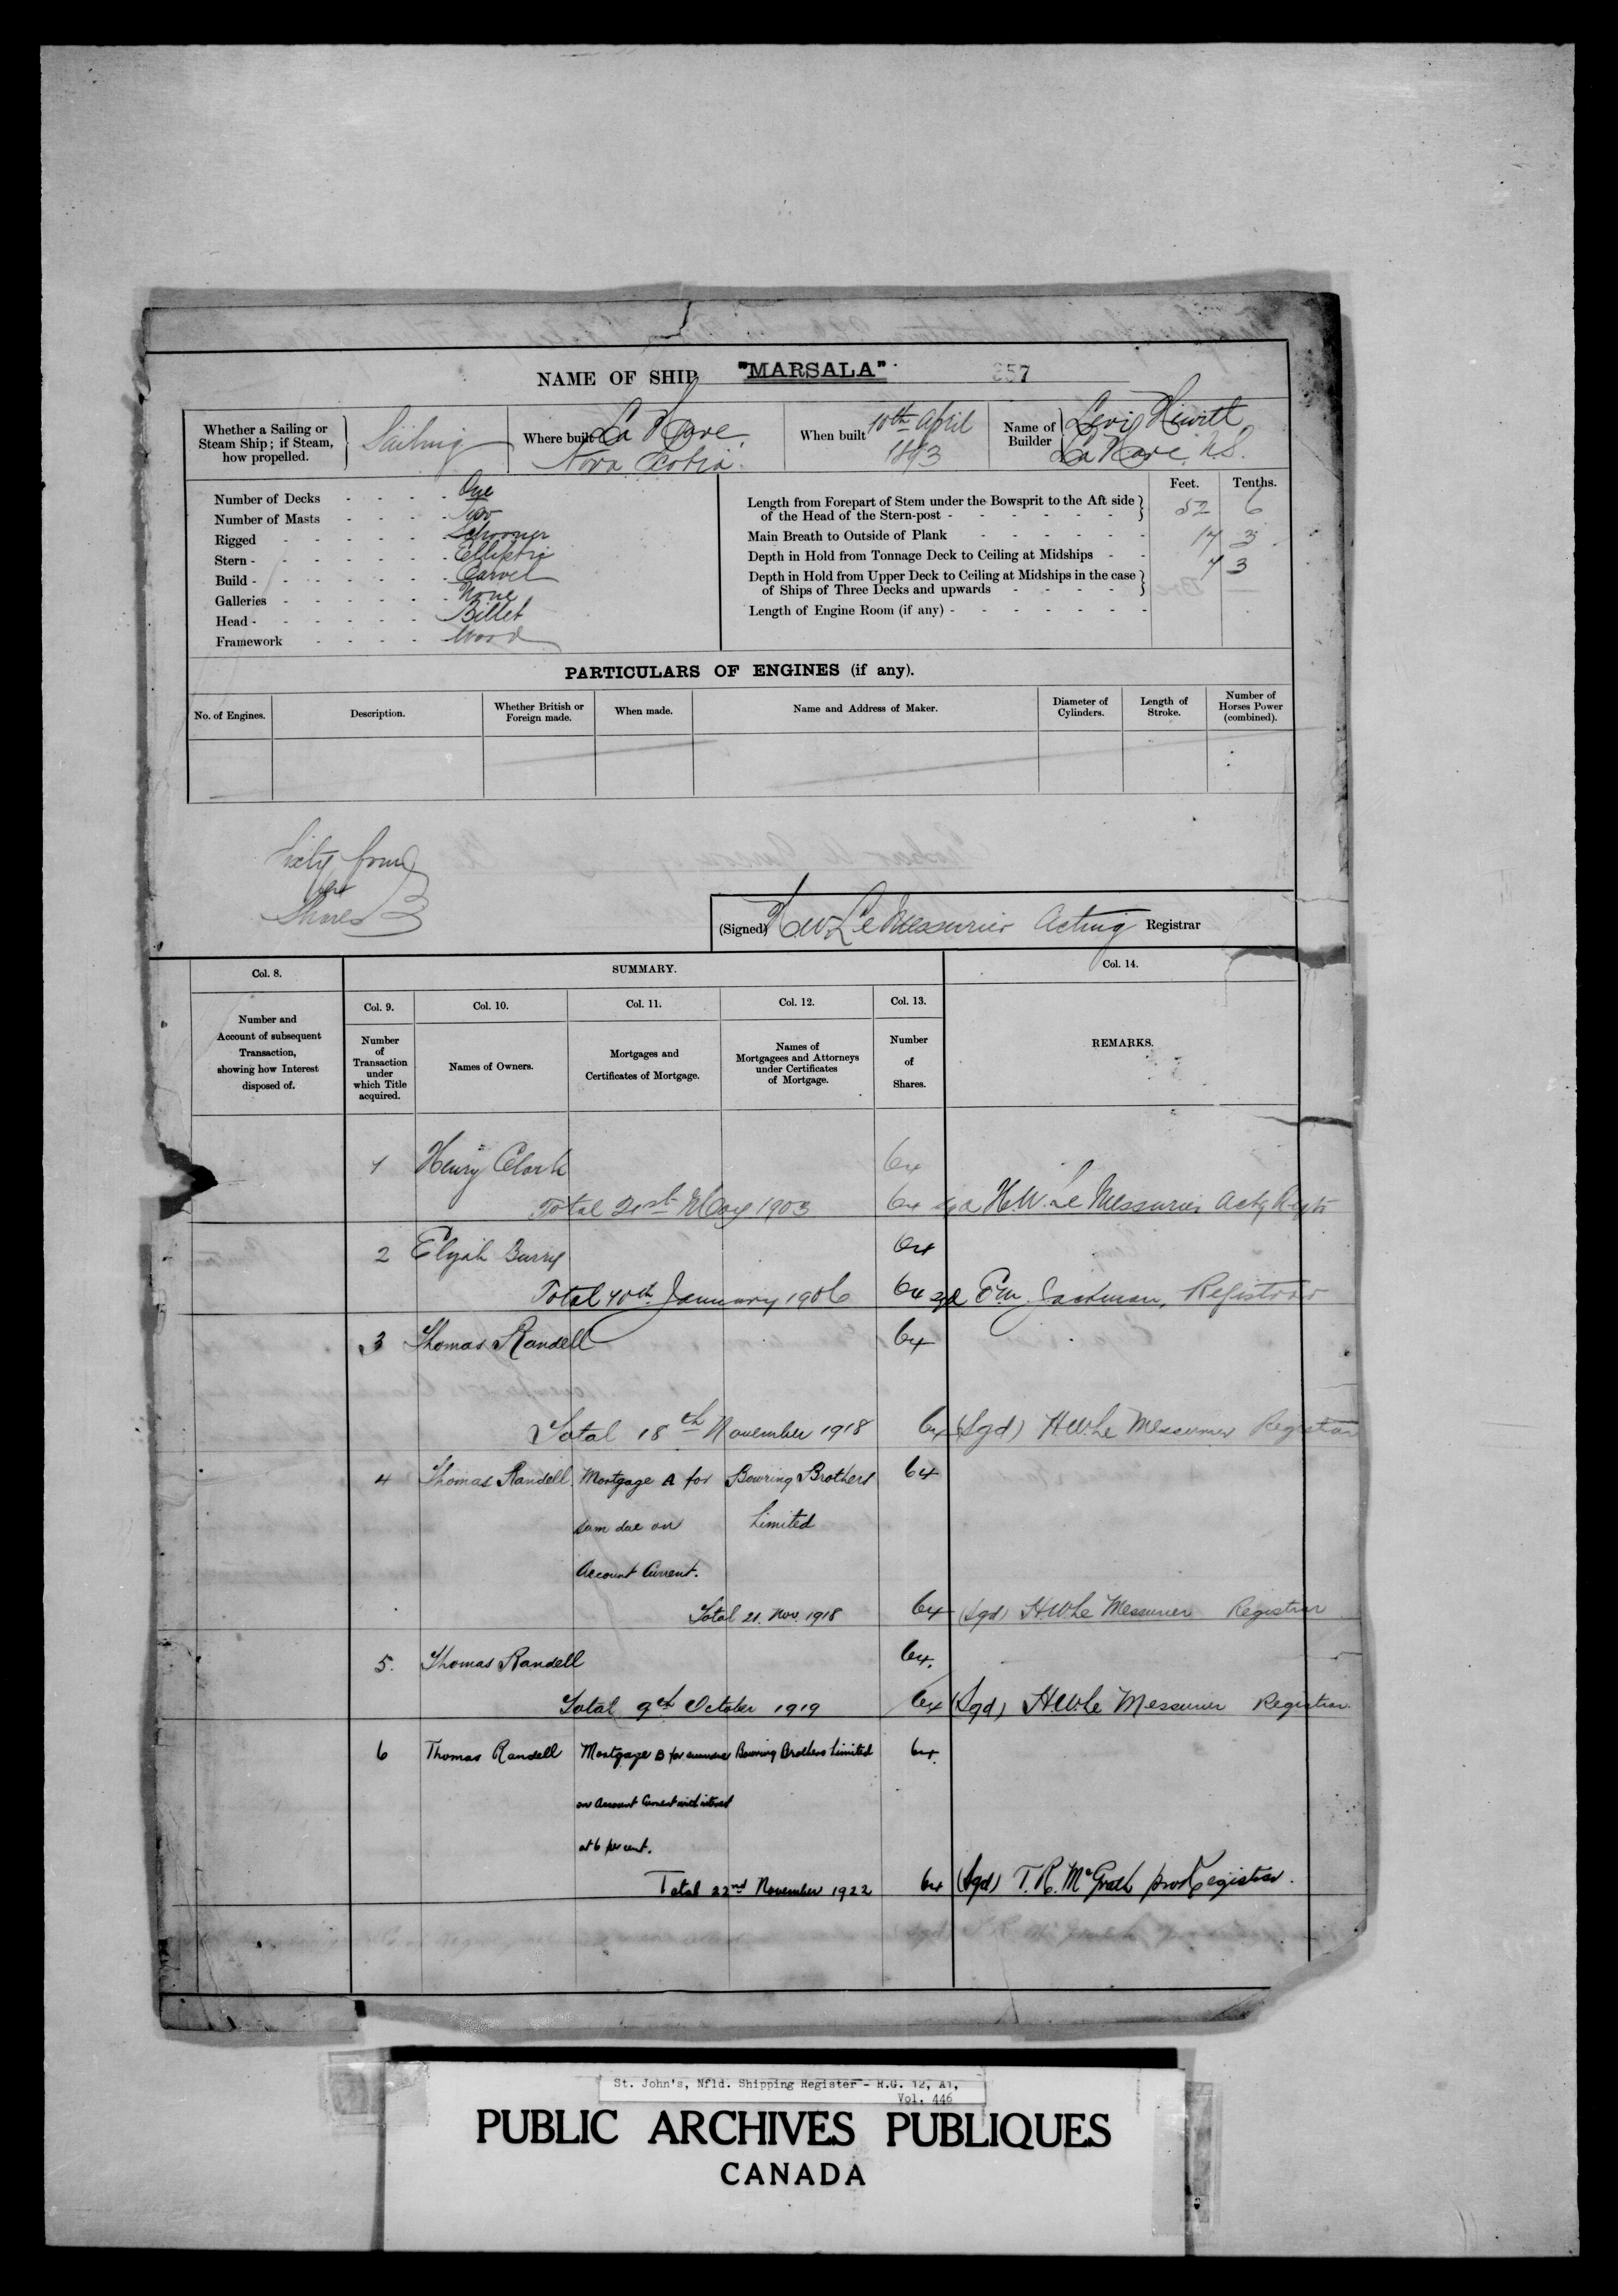 NAME OF SHIP "MARSALA" 357
Whether a Sailing or Steam Ship; if Steam, how propelled. Sailing
Where built La Have, Nova Scotia.
When built 10th April 1893
Name of Builder Levi Hewitt La Have N.S.
Number of Decks - - - - One
Number of Masts - - - - Two
Rigged - - - - - Schooner
Stern - - - - - - Elliptic
Build - - - - - - Carvel
Galleries - - - - - None
Head - - - - - - Billet
Framework - - - - Wood
Feet. Tenths.
Length from Forepart of Stem under the Bowsprit to the Aft side
of the Head of the Stern-post - - - - - - 52 6
Main Breath to Outside of Plank - - - - - - 17 3
Depth in Hold from Tonnage Deck to Ceiling at Midships - - 7 3
Depth in Hold from Upper Deck to Ceiling at Midships in the case
of Ships of Three Decks and upwards - - - -
Length of Engine Room (if any) - - - - - - -
PARTICULARS OF ENGINES (if any).
No. of Engines. Description. Whether British or Foreign made. When made. Name and Address of Maker. Diameter of Cylinders. Length of Stroke. Number of Horses Power (combined).
Sixty four
Shares
(Signed) H.W. LeMessurier Acting Registrar
Col. 8. SUMMARY. Col. 14.
Col. 9. Col. 10. Col. 11. Col. 12. Col. 13.
Number and Account of subsequent Transaction, showing how Interest disposed of.
Number of Transaction under which Title acquired.
Names of Owners.
Mortgages and Certificates of Mortgage.
Names of Mortgagees and Attorneys under Certificates of Mortgage.
Number of Shares.
REMARKS.
1 Henry Clark 64
Total 21st May 1903 64 sgd H.W. Le Messurier Actg Regtr
2 Elijah Burry 64
Total 10th January 1906 64 sgd E.M. Jackman, Registrar
3 Thomas Randell 64
Total 18th November 1918 64 (Sgd) H.W. Le Messurier Registrar
4 Thomas Randell Mortgage A for Bowring Brothers 64
sum due on Limited
Account Current.
Total 21. Nov. 1918 64 (Sgd) H W Le Messurier Registrar
5. Thomas Randell 64.
Total 9th October 1919 64 (Sgd) H.W. Le Messurier Registrar.
6 Thomas Randell Mortgage B for Bowring Brothers Limited 64.
on Account Current with interest
at 6 per cent.
Total 22nd November 1922 64 (Sgd) T. R. McGrath pro Registrar.
St. John's, Nfld. Shipping Register - R.G. 12, A1,
Vol. 446
PUBLIC ARCHIVES PUBLIQUES
CANADA